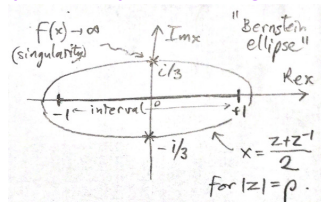 f(x) → ∞
(singularity)
Im x
"Bernstein
ellipse"
i/3
Re x
-1
← interval →
0
+1
-i/3
x = (z+z⁻¹)/2
for |z| = ρ.